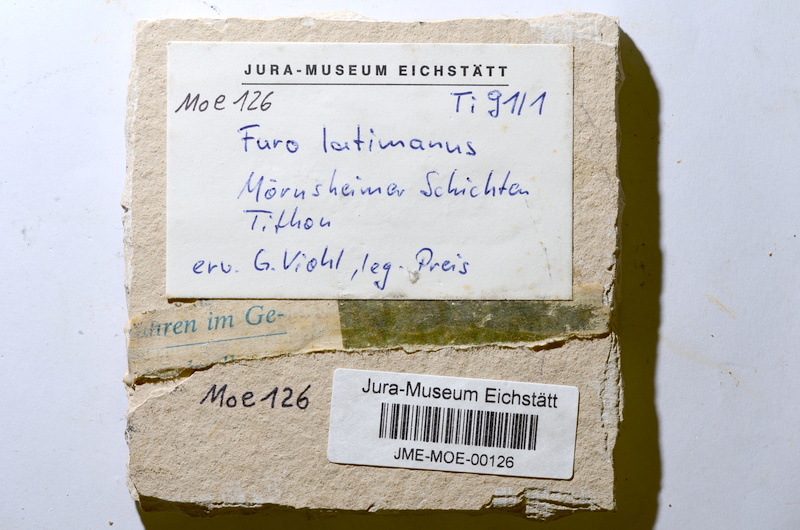 JURA-MUSEUM EICHSTÄTT
Moe 126 Ti 91/1
Furo latimanus
Mörnsheimer Schichten
Tithon
erw. G. Viohl, leg. Preis
hren im Ge-
Moe 126
Jura-Museum Eichstätt
JME-MOE-00126